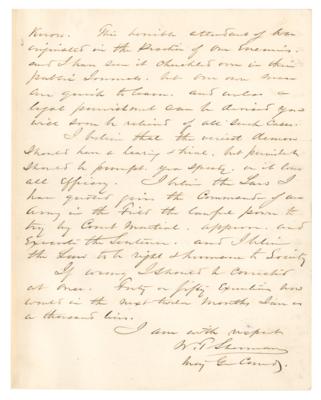 Know. This horrible attendant of War
originated in the Practice of our Enemies.
and I have seen it chuckled over in their
public Journals. but our own men
are quick to learn. and unless a
legal punishment can be devised you
will soon be relieved of all such cases.
I believe that the veriest demon
should have a hearing & trial. but punishment
should be prompt. yea speedy. or it loses
all efficacy. I believe the Laws I
have quoted give the Commander of an
Army in the Field the lawful power to
try by Court Martial. approve. and
Execute the Sentence. and I believe
the Law to be right & humane to Society
If wrong I should be corrected
at once. Forty or fifty Executions now
would in the next twelve Months Save
a thousand lives.
I am with respect
W. T. Sherman
Maj Gen Comdg.